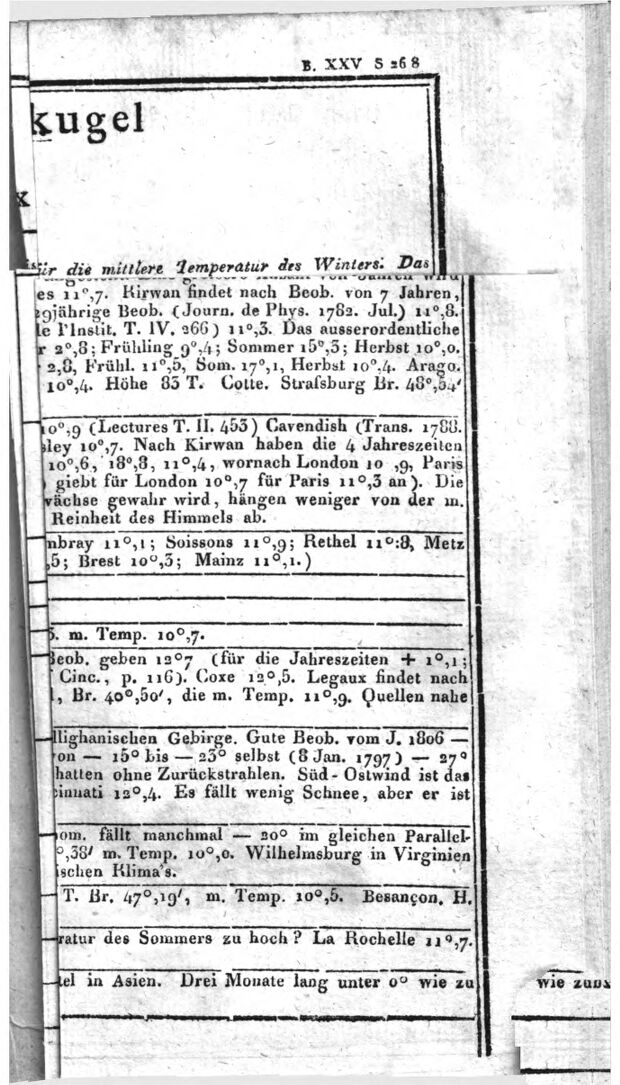 B. XXV S 268
kugel
x
für die mittlere Temperatur des Winters. Das
es 11°,7. Kirwan findet nach Beob. von 7 Jahren,
29jährige Beob. (Journ. de Phys. 1782. Jul.) 11°,8.
le l'Instit. T. IV. 266) 11°,3. Das ausserordentliche
r 2°,8; Frühling 9°,4; Sommer 15°,3; Herbst 10°,0.
2,8, Frühl. 11°,5, Som. 17°,1, Herbst 10°,4. Arago.
10°,4. Höhe 83 T. Cotte. Strafsburg Br. 48°,34'
10°,9 (Lectures T. II. 453) Cavendish (Trans. 1788.
sley 10°,7. Nach Kirwan haben die 4 Jahreszeiten
10°,6, 18°,8, 11°,4, wornach London 10 ,9, Paris
giebt für London 10°,7 für Paris 11°,3 an). Die
vächse gewahr wird, hängen weniger von der m.
Reinheit des Himmels ab.
mbray 11°,1; Soissons 11°,9; Rethel 11°:8, Metz
,5; Brest 10°,3; Mainz 11°,1.)
5. m. Temp. 10°,7.
Beob. geben 12°7 (für die Jahreszeiten + 1°,1;
Cinc., p. 116). Coxe 12°,5. Legaux findet nach
l, Br. 40°,50', die m. Temp. 11°,9. Quellen nahe
llighanischen Gebirge. Gute Beob. vom J. 1806 —
von — 15° bis — 23° selbst (8 Jan. 1797) — 27°
hatten ohne Zurückstrahlen. Süd-Ostwind ist das
cinnati 12°,4. Es fällt wenig Schnee, aber er ist
om. fällt manchmal — 20° im gleichen Parallel-
°,38' m. Temp. 10°,0. Wilhelmsburg in Virginien
ischen Klima's.
T. Br. 47°,19', m. Temp. 10°,5. Besançon. H.
ratur des Sommers zu hoch? La Rochelle 11°,7.
tel in Asien. Drei Monate lang unter 0° wie zu
wie zuns